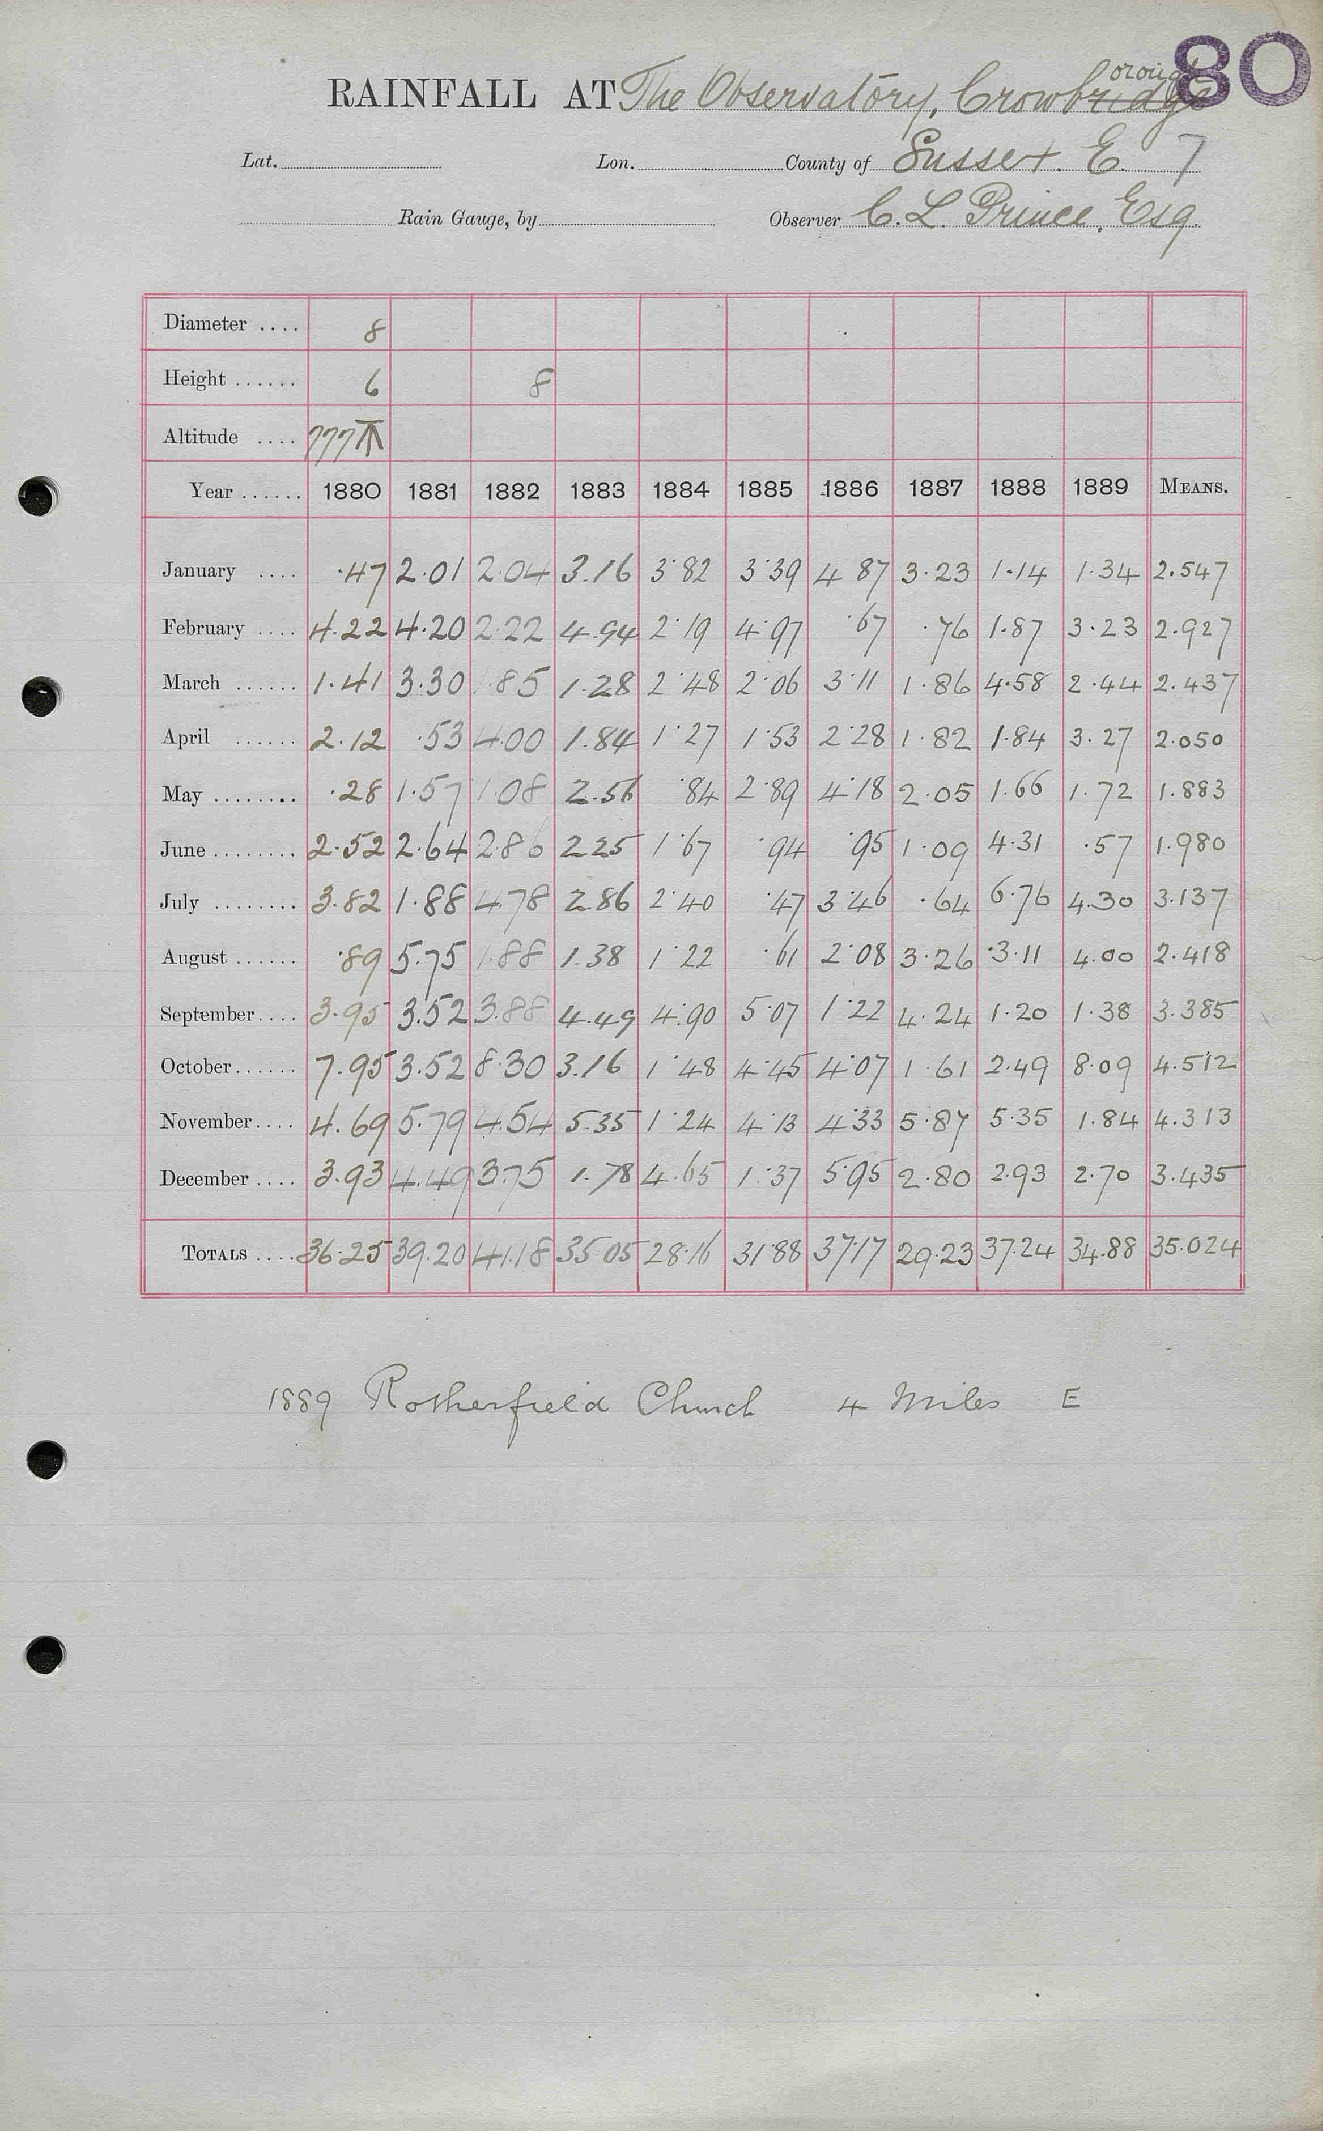 80
RAINFALL AT The Observatory, Crowbridge orough
Lat. Lon. County of Sussex. E. 7
Rain Gauge, by Observer C. L. Prince, Esq.
Diameter .... 8
Height ...... 6 8
Altitude .... 777
Year ...... 1880 1881 1882 1883 1884 1885 1886 1887 1888 1889 MEANS.
January .... ·47 2·01 2·04 3·16 3·82 3·39 4 87 3·23 1·14 1·34 2·547
February .... 4·22 4·20 2·22 4·94 2·19 4·97 ·67 ·76 1·87 3·23 2·927
March ...... 1·41 3·30 1·85 1·28 2·48 2·06 3·11 1·86 4·58 2·44 2·437
April ...... 2·12 ·53 4·00 1·84 1·27 1·53 2·28 1·82 1·84 3·27 2·050
May ........ ·28 1·57 1·08 2·56 ·84 2·89 4·18 2·05 1·66 1·72 1·883
June ........ 2·52 2·64 2·86 2·25 1·67 ·94 ·95 1·09 4·31 ·57 1·980
July ........ 3·82 1·88 4·78 2·86 2·40 ·47 3·46 ·64 6·76 4·30 3·137
August ...... ·89 5·75 1·88 1·38 1·22 ·61 2·08 3·26 3·11 4·00 2·418
September.... 3·95 3·52 3·88 4·49 4·90 5·07 1·22 4·24 1·20 1·38 3·385
October...... 7·95 3·52 8·30 3·16 1·48 4·45 4·07 1·61 2·49 8·09 4·512
November.... 4·69 5·79 4·54 5·35 1·24 4·13 4·33 5·87 5·35 1·84 4·313
December .... 3·93 4·49 3·75 1·78 4·65 1·37 5·95 2·80 2·93 2·70 3·435
TOTALS .... 36·25 39·20 41·18 35·05 28·16 31·88 37·17 29·23 37·24 34·88 35·024
1889 Rotherfield Church 4 Miles E